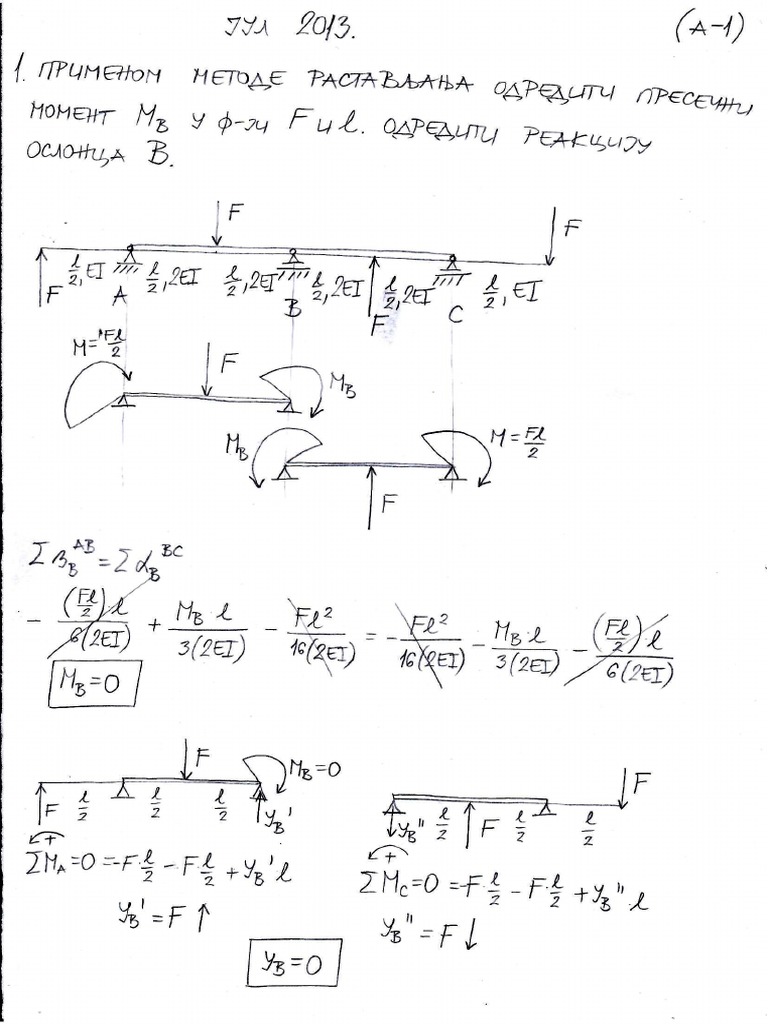 ЈУЛ 2013.
(А-1)
1. ПРИМЕНОМ МЕТОДЕ РАСТАВЉАЊА ОДРЕДИТИ ПРЕСЕЧНИ
МОМЕНТ M_B У Ф-ЈИ F И l. ОДРЕДИТИ РЕАКЦИЈУ
ОСЛОНЦА B.
F F
l/2, EI l/2, 2EI l/2, 2EI l/2, 2EI l/2, 2EI l/2, EI
F A B F C
M = Fl/2 F M_B
M_B M = Fl/2
F
Σ β_B^AB = Σ α_B^BC
- (Fl/2) l / 6(2EI) + M_B l / 3(2EI) - Fl² / 16(2EI) = - Fl² / 16(2EI) - M_B·l / 3(2EI) - (Fl/2) l / 6(2EI)
M_B = 0
F M_B = 0 F
F l/2 l/2 l/2 Y_B' Y_B'' l/2 F l/2 l/2
+
ΣM_A = 0 = -F·l/2 - F·l/2 + Y_B' l
Y_B' = F ↑
+
ΣM_C = 0 = -F·l/2 - F·l/2 + Y_B''·l
Y_B'' = F ↓
Y_B = 0